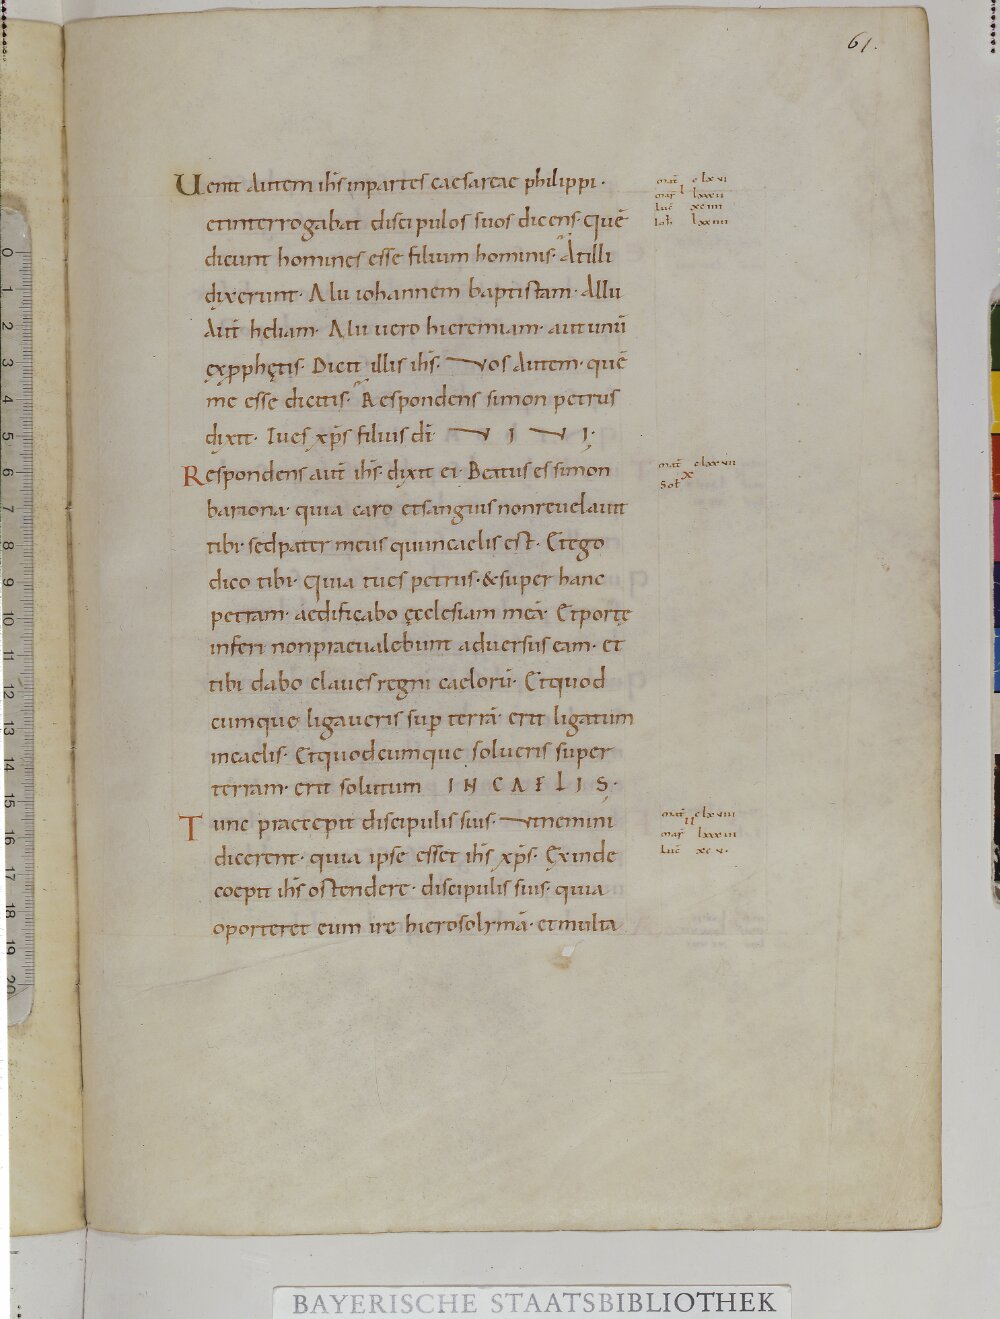 61.
Uenit Autem ihs̄ inpartes caesareae philippi·
etinterrogabat discipulos suos dicens· quē
dicunt homines esse filium hominis· Atilli
dixerunt· Alii iohannem baptistam· Alii
Aut̄ heliam· Alii uero hieremiam· aut unū
ex p̱phetis· Dicit illis ihs̄· Vos Autem· quē
me esse dicitis· Respondens simon petrus
dixit· Tues xp̄s filius dī VIVI·
Respondens aut̄ ihs̄· dixit ei· Beatus es simon
bariona· quia caro etsanguis nonreuelauit
tibi· sedpater meus quiincaelis est· Etego
dico tibi· quia tues petrus· &super hanc
petram· aedificabo ęcclesiam meā· Etportę
inferi nonpraeualebunt aduersus eam· et
tibi dabo claues regni caelorū· Etquod
cumque ligaueris sup̱ terrā· erit ligatum
incaelis· Etquodcumque solueris super
terram· erit solutum INCAELIS·
Tunc praecepit discipulis suis· Vtnemini
dicerent· quia ipse esset ihs̄ xp̄s· Exinde
coepit ihs̄ ostendere· discipulis suis· quia
oporteret eum ire hierosolymā· etmulta
mat̄ clxvi
mar̄ lxxxii
Luc̄ xciiii
Ioh̄ lxxiiii
mat̄ clxvii
x
Sol̄
mat̄ clxviii
mar̄ lxxxiii
Luc̄ xcv·
0
1
2
3
4
5
6
7
8
9
10
11
12
13
14
15
16
17
18
19
20
BAYERISCHE STAATSBIBLIOTHEK